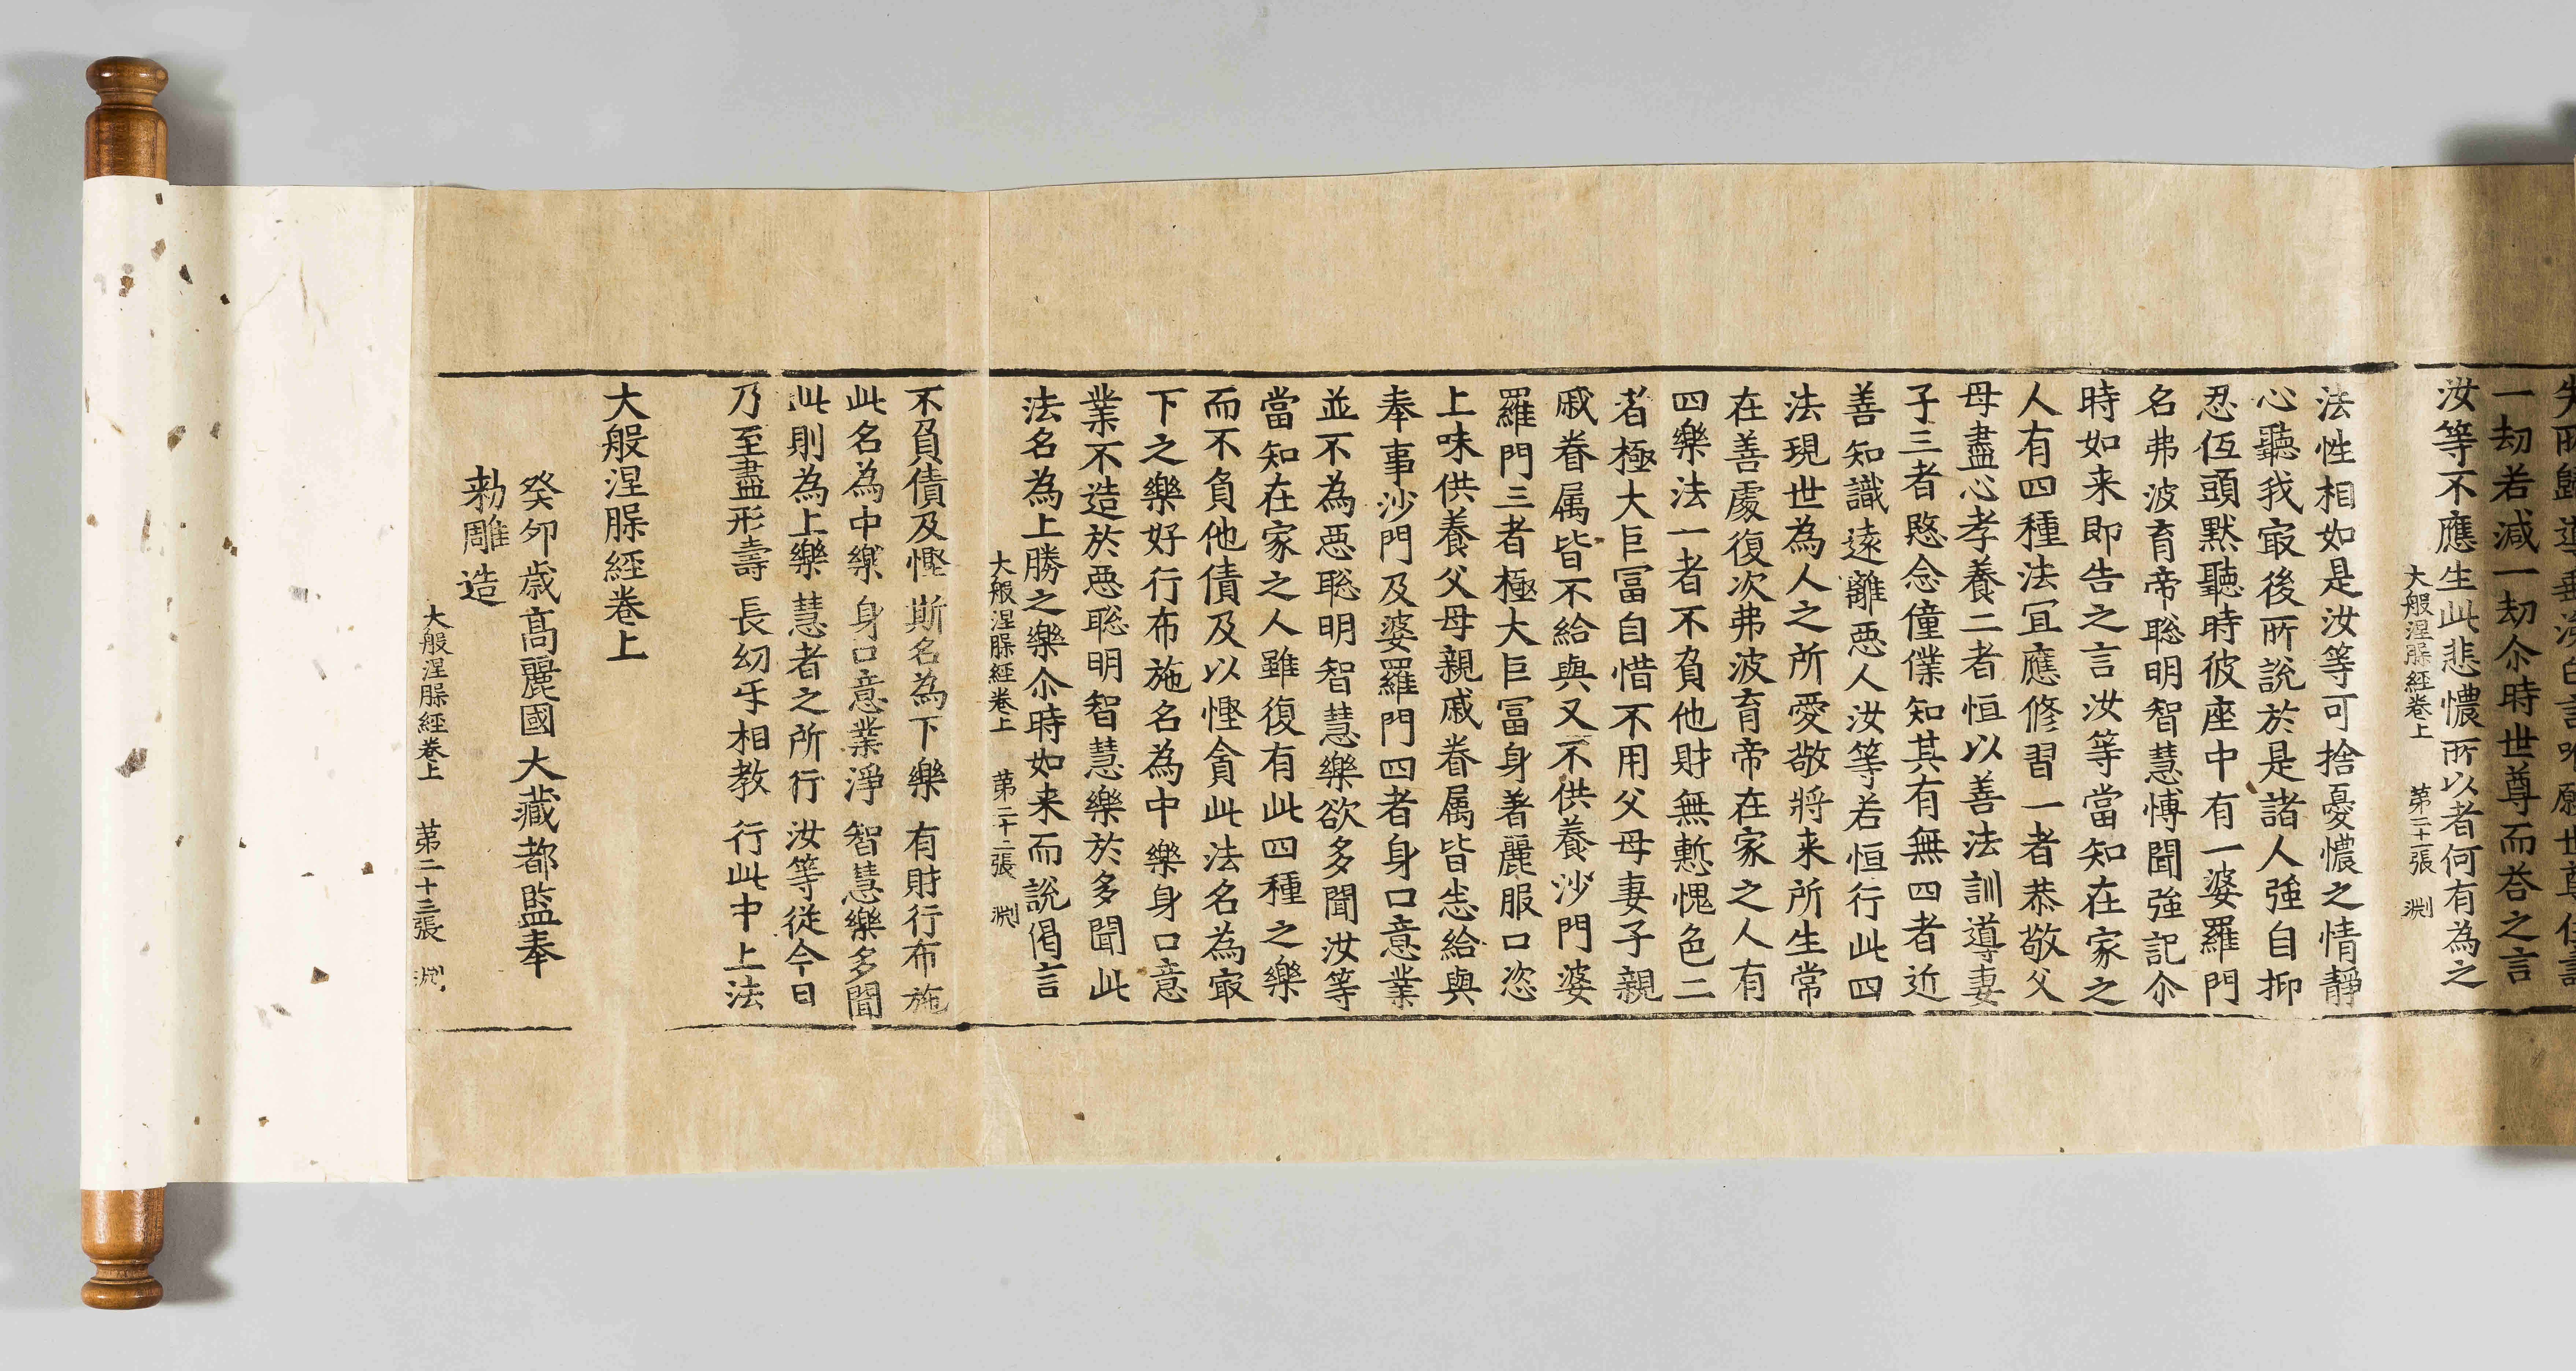 一劫若減一劫尒時世尊而荅之言
汝等不應生此悲懷所以者何有為之
大般涅槃經卷上 第二十一張 淵
法性相如是汝等可捨憂懷之情靜
心聽我㝡後所說於是諸人強自抑
忍伍頭默聽時彼座中有一婆羅門
名弗波育帝聡明智慧愽聞強記尒
時如来即告之言汝等當知在家之
人有四種法冝應修習一者恭敬父
母盡心孝養二者恒以善法訓導妻
子三者愍念僮僕知其有無四者近
善知識遠離惡人汝等若恒行此四
法現世為人之所愛敬將来所生常
在善處復次弗波育帝在家之人有
四樂法一者不負他財無慙愧色二
者極大巨冨自惜不用父母妻子親
戚眷属皆不給與又不供養沙門婆
羅門三者極大巨冨身著麗服口恣
上味供養父母親戚眷属皆悉給與
奉事沙門及婆羅門四者身口意業
並不為惡聡明智慧樂欲多聞汝等
當知在家之人雖復有此四種之樂
而不負他債及以慳貪此法名為㝡
下之樂好行布施名為中樂身口意
業不造於惡聡明智慧樂於多聞此
法名為上勝之樂尒時如来而說偈言
大般涅槃經卷上 第二十二張 淵
不負債及慳 斯名為下樂 有財行布施
此名為中樂 身口意業淨 智慧樂多聞
此則為上樂 慧者之所行 汝等從今日
乃至盡形壽 長幼乎相教 行此中上法
大般涅槃經卷上
癸夘歳髙麗國大藏都監奉
勅雕造
大般涅槃經卷上 第二十三張 淵